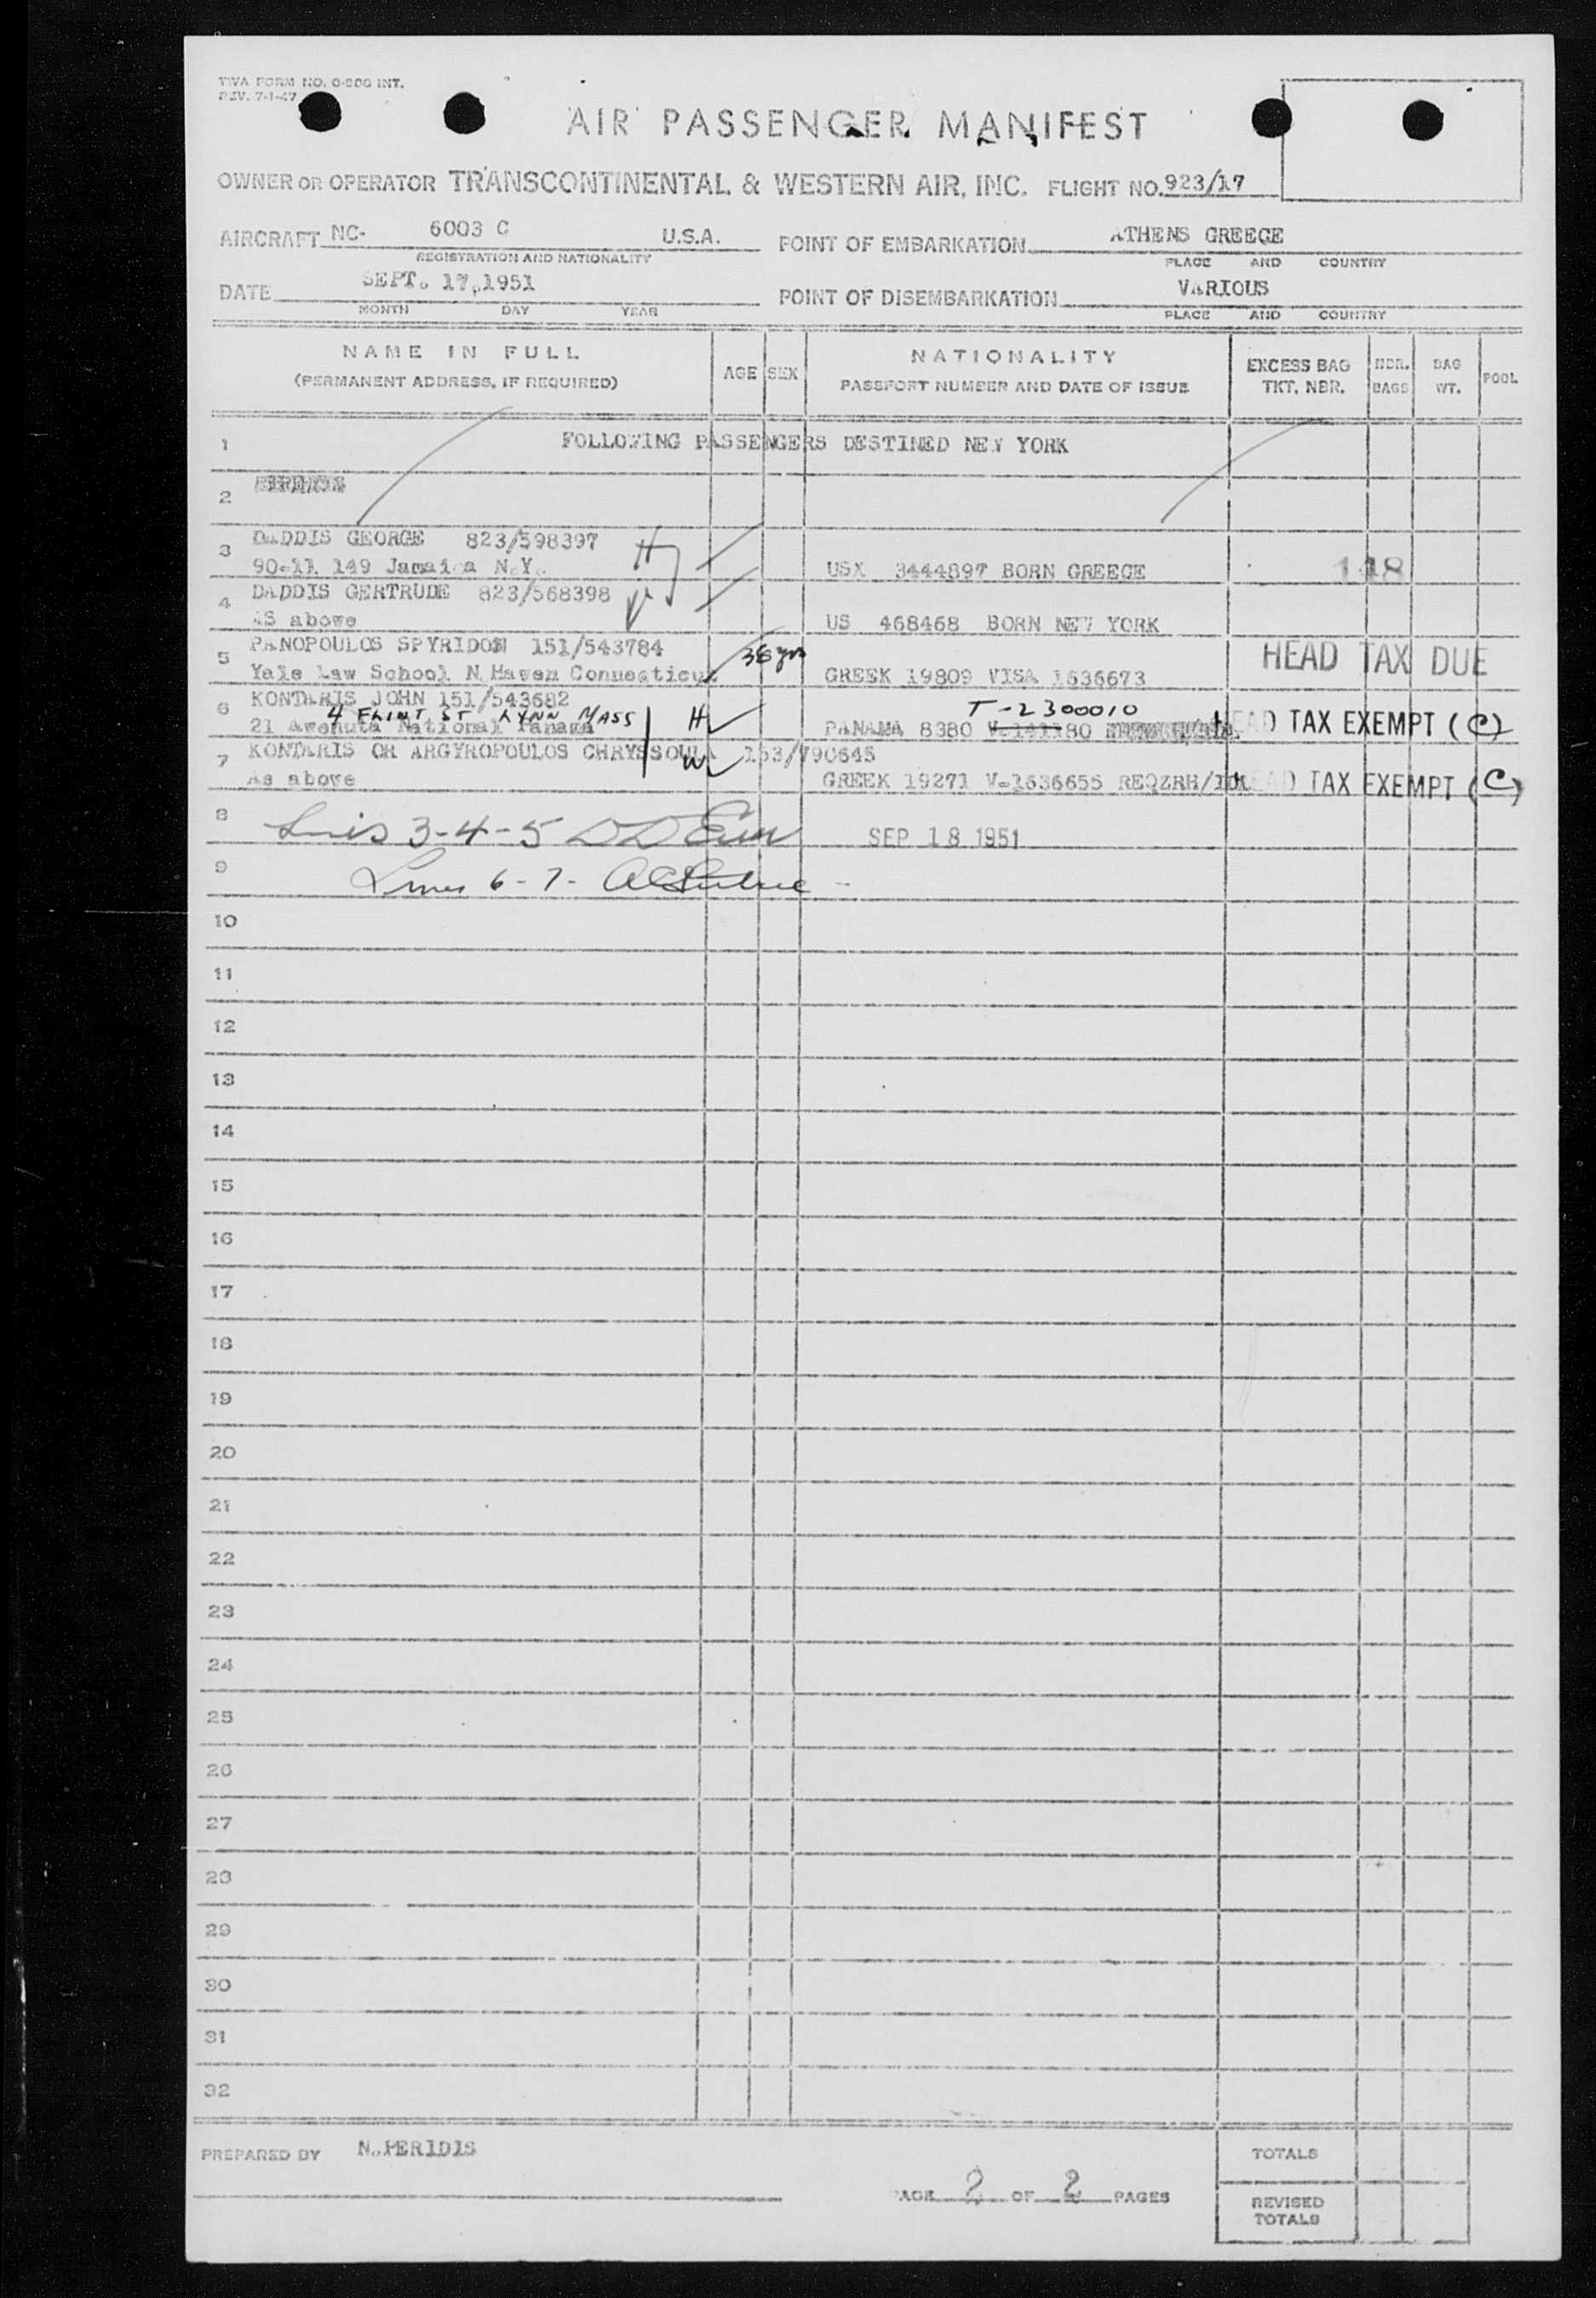 TWA FORM NO. 0-800 INT.
REV. 7-1-47
AIR PASSENGER MANIFEST
OWNER OR OPERATOR TRANSCONTINENTAL & WESTERN AIR, INC. FLIGHT NO. 923/17
AIRCRAFT NC- 6003 C U.S.A. POINT OF EMBARKATION ATHENS GREECE
REGISTRATION AND NATIONALITY PLACE AND COUNTRY
DATE SEPT. 17,1951 POINT OF DISEMBARKATION VARIOUS
MONTH DAY YEAR PLACE AND COUNTRY
NAME IN FULL (PERMANENT ADDRESS, IF REQUIRED) AGE SEX NATIONALITY PASSPORT NUMBER AND DATE OF ISSUE EXCESS BAG TKT. NBR. NBR. BAGS BAG WT. POOL
1 FOLLOWING PASSENGERS DESTINED NEW YORK
2
3 DADDIS GEORGE 823/598397 H
90-11 149 Jamaica N.Y. USX 3444897 BORN GREECE 148
4 DADDIS GERTRUDE 823/568398
AS above US 468468 BORN NEW YORK
5 PANOPOULOS SPYRIDON 151/543784 36 yrs HEAD TAX DUE
Yale Law School N.Haven Connecticut GREEK 19809 VISA 1636673
6 KONTARIS JOHN 151/543682 T-2300010
4 FLINT ST LYNN MASS H
21 Avenuta National Panama PANAMA 8380 HEAD TAX EXEMPT (C)
7 KONTARIS OR ARGYROPOULOS CHRYSSOULA 153/790645 W
As above GREEK 19271 V-1636655 HEAD TAX EXEMPT (C)
8 3-4-5 SEP 18 1951
9 Lines 6-7-
10
11
12
13
14
15
16
17
18
19
20
21
22
23
24
25
26
27
28
29
30
31
32
PREPARED BY N.PERIDIS TOTALS
PAGE 2 OF 2 PAGES
REVISED TOTALS